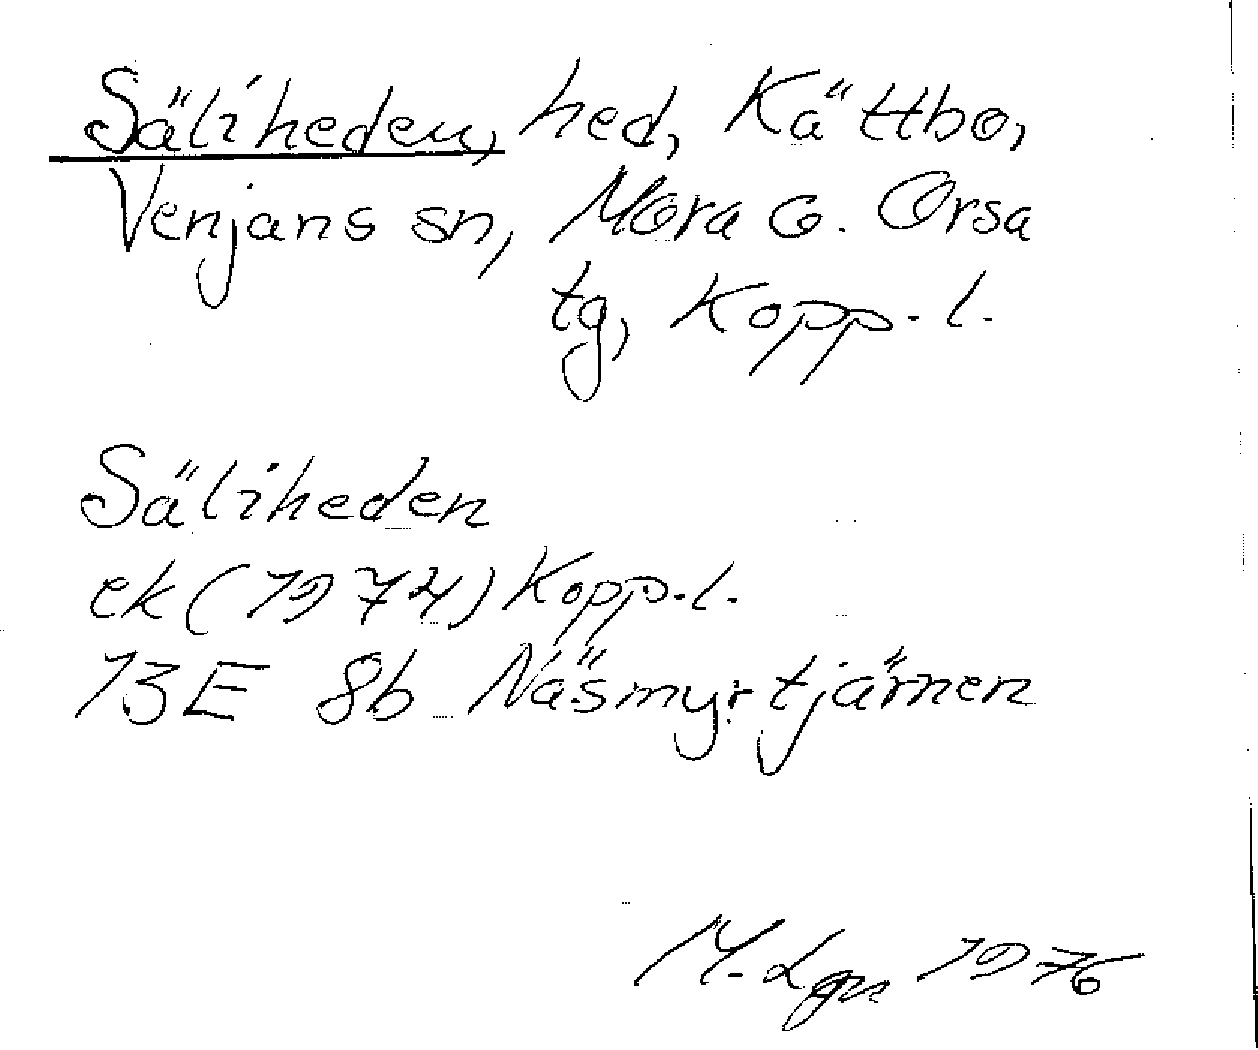 Säliheden, hed, Kättbo,
Venjans sn, Mora o. Orsa
tg, Kopp. l.
Säliheden
ek (1974) Kopp. l.
13E 8b Näsmyrtjärnen
M. Lgn 1976